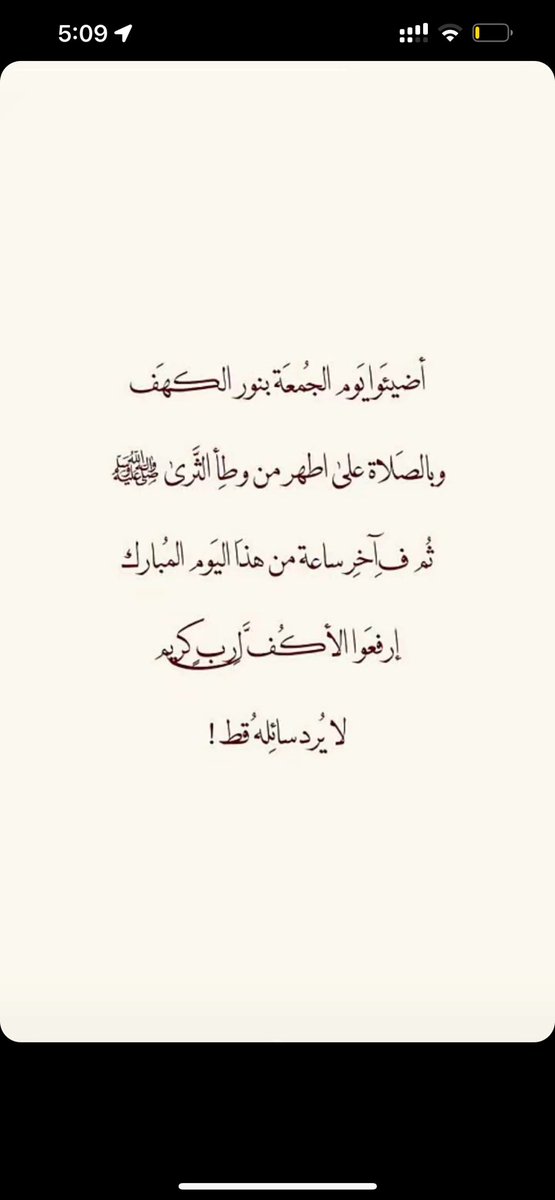 5:09
أضيئَوا يَوم الجُمعَة بنور الكهَف
وبالصَلاة علىٰ اطهر من وطِأ الثَّرىٰ ﷺ
ثُم فِ آخرِ ساعة من هذَا اليَوم المُبارك
إرفعَوا الأكُف لَربٍ كريم
لا يُرد سائِلهُ قط !